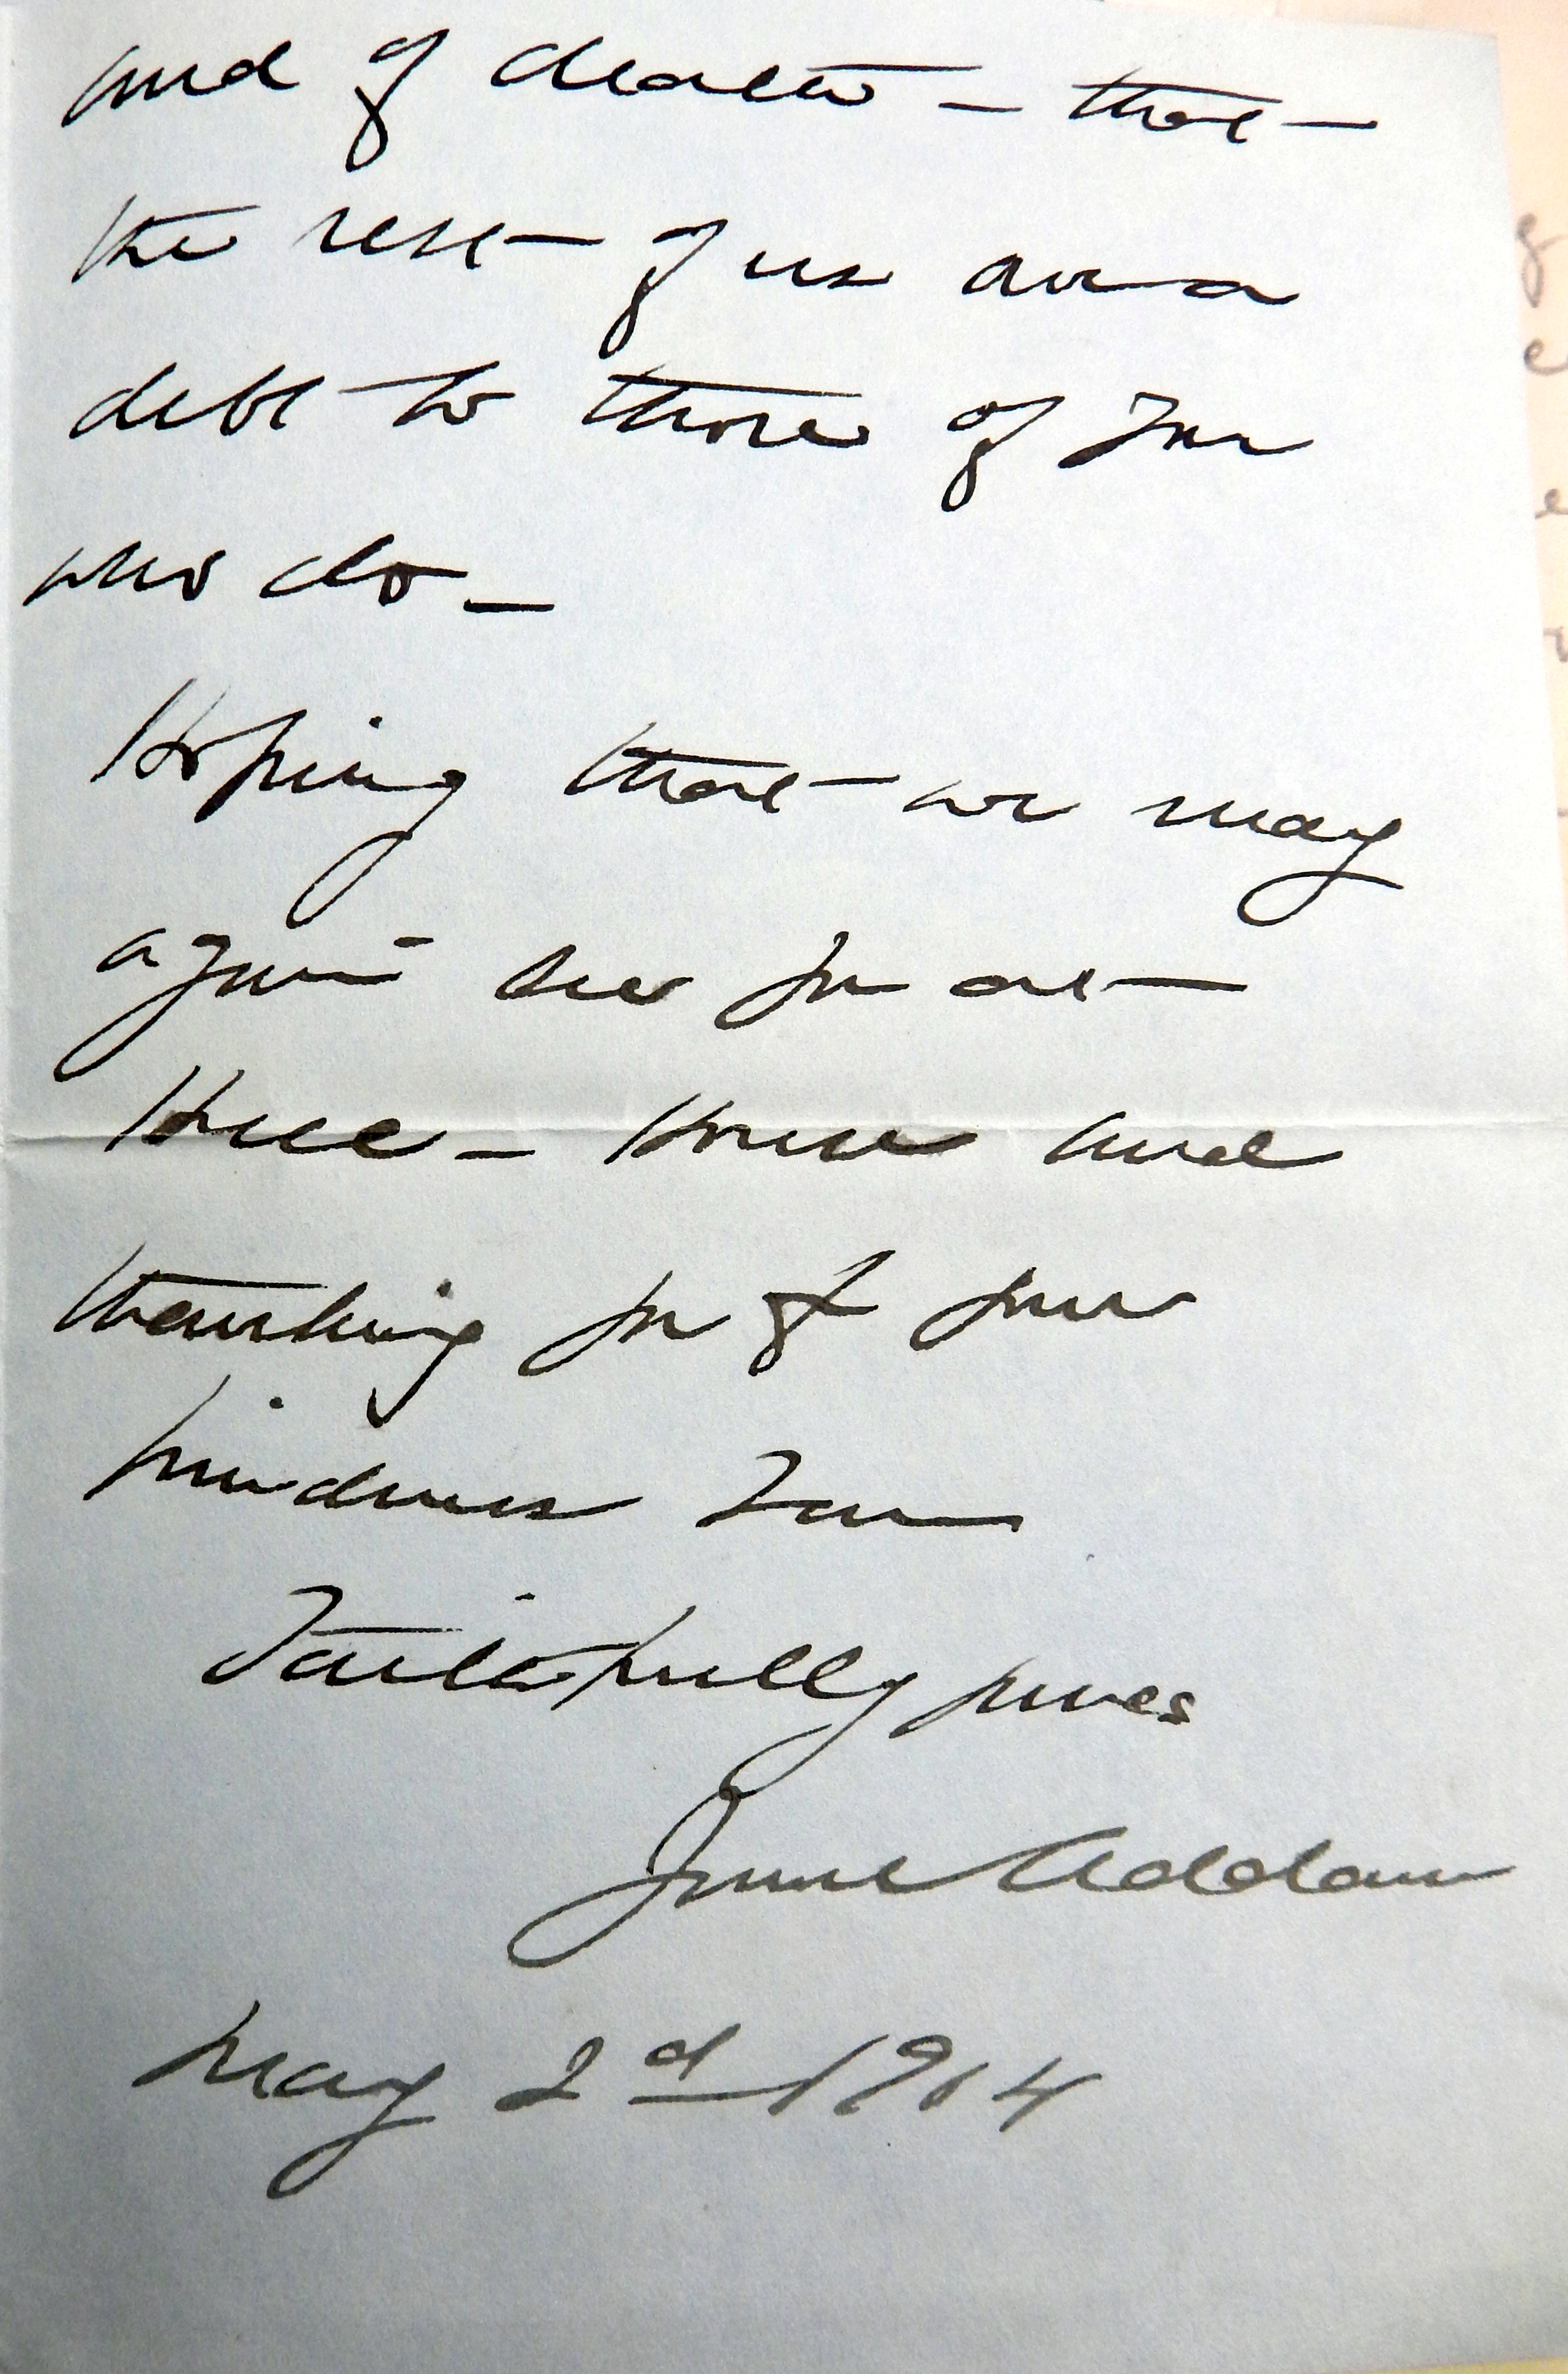 and of death — that
the rest of us owe a
debt to those of you
who do —
Hoping that we may
again see you at
Hull-House and
thanking you for your
kindness I am
Faithfully yours
Jane Addams
May 2d 1914